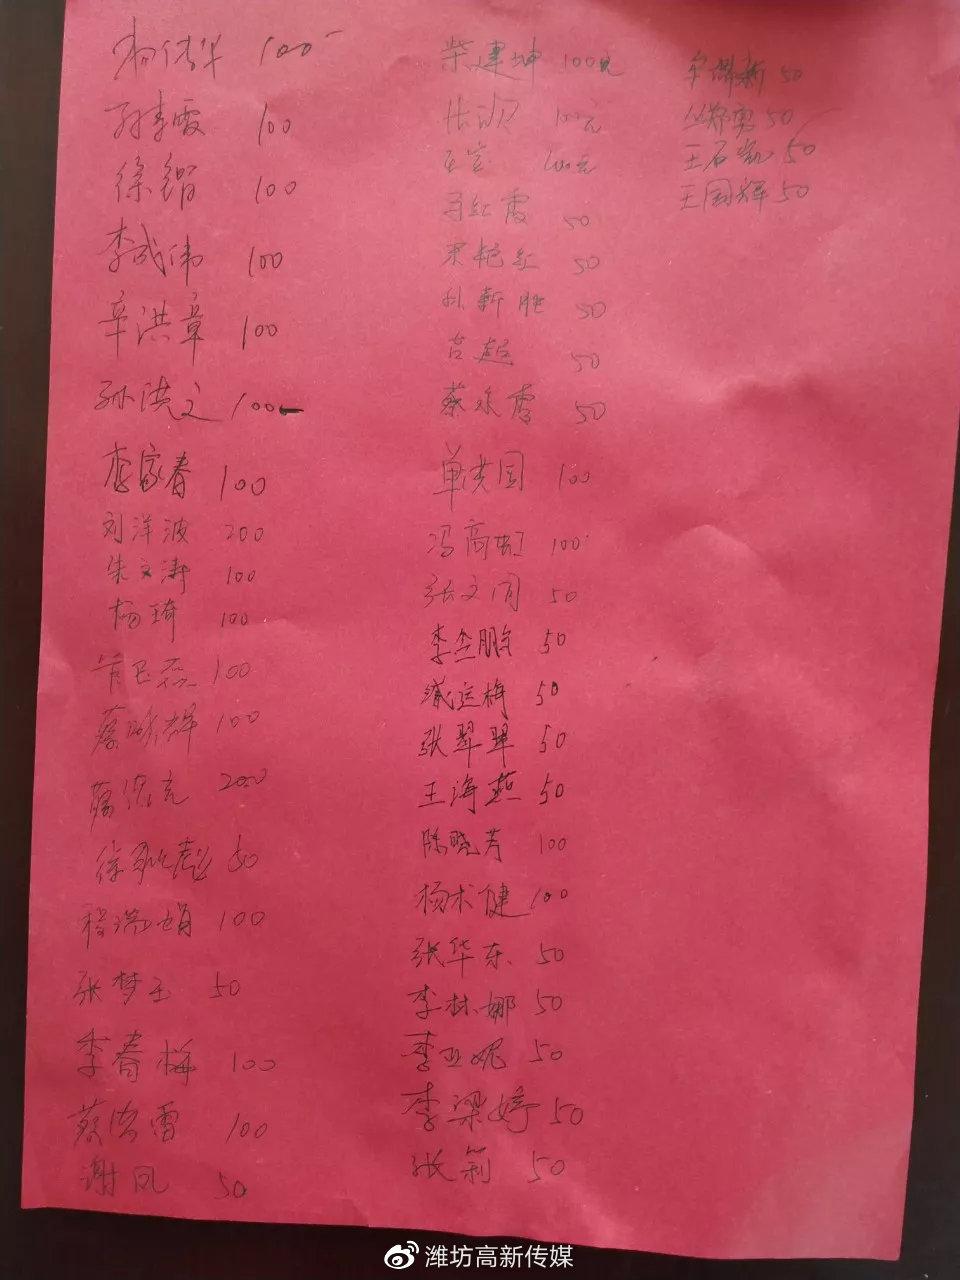 100
孙青霞 100
徐娟 100
李成伟 100
辛洪章 100
孙洪文 100
李家春 100
刘洋波 200
朱文涛 100
杨琦 100
100
蔡咏辉 100
200
徐 50
程瑞娟 100
张梦玉 50
李春梅 100
蔡洪雷 100
谢凤 50
柴建坤 100元
张欣 100元
王宝 100元
马红霞 50
宋艳红 50
孙新胜 50
吉超 50
蔡永霞 50
单洪国 100
冯高虹 100
张文周 50
李金鹏 50
臧运梅 50
张翠翠 50
王海燕 50
陈晓芳 100
杨术健 100
张华东 50
李林娜 50
李亚妮 50
李梁婷 50
张莉 50
新 50
丛郑勇 50
王石凯 50
王国辉 50
潍坊高新传媒